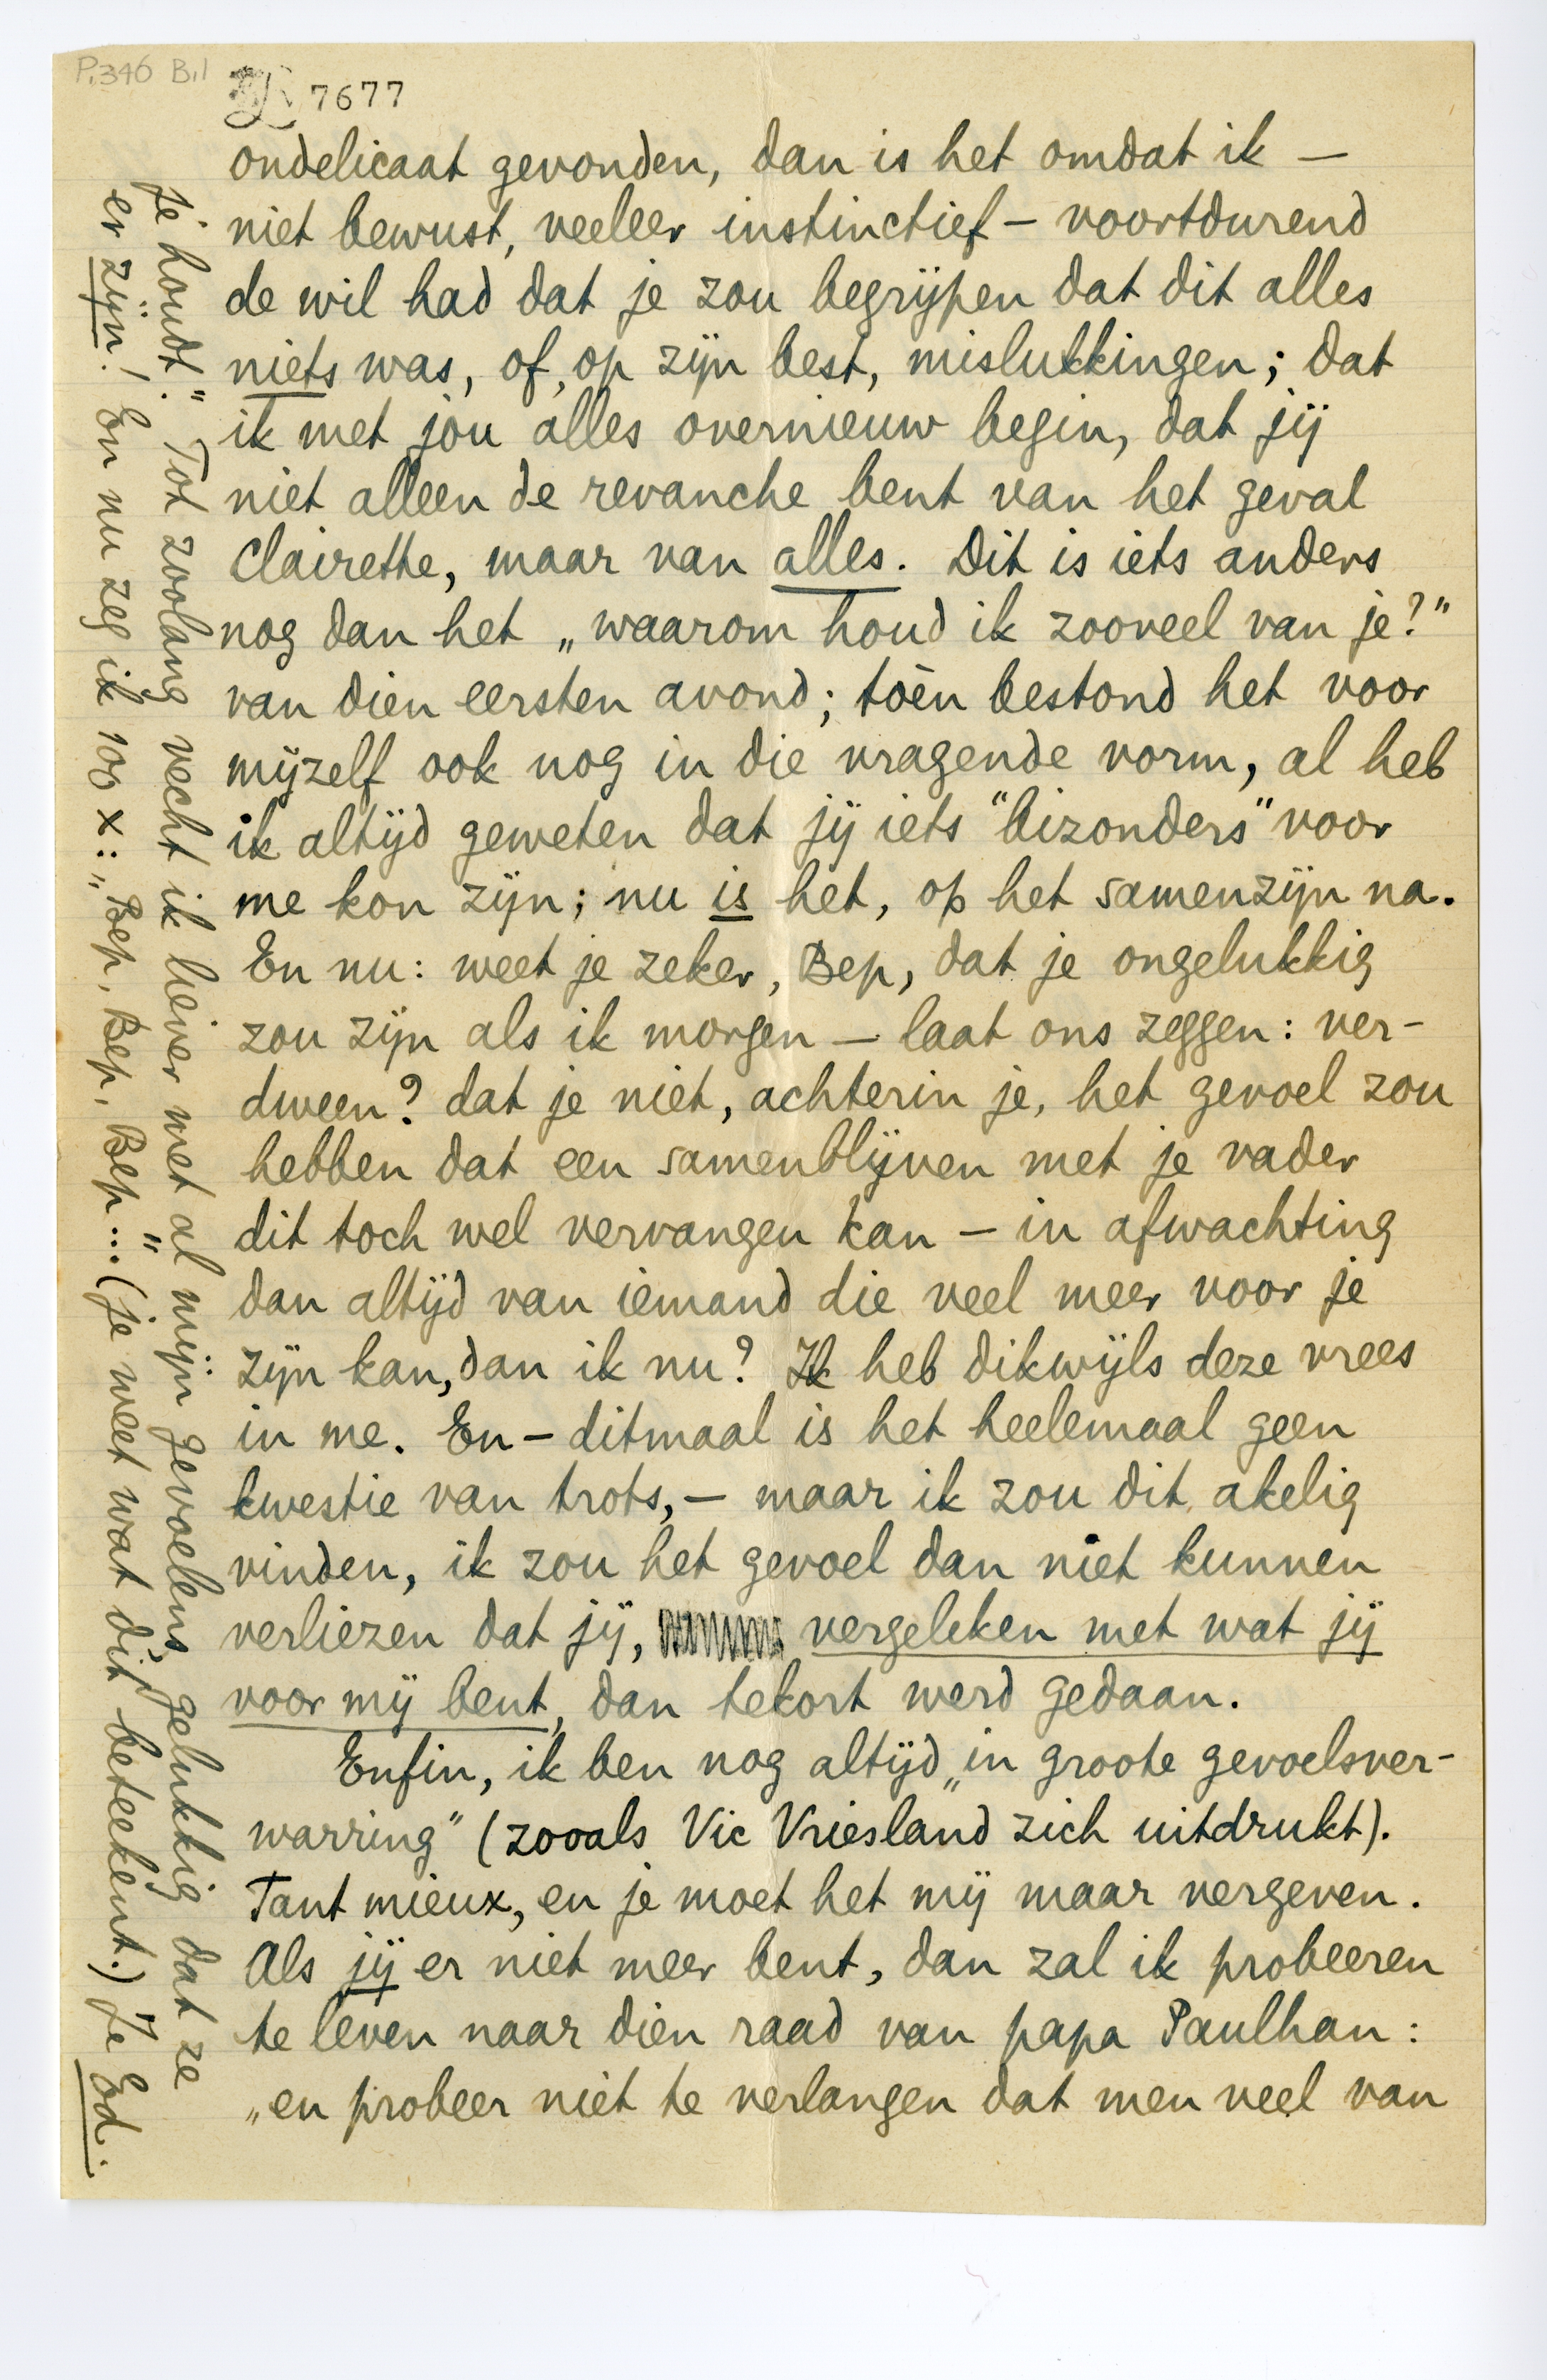 P.346 B.1
7677
ondelicaat gevonden, dan is het omdat ik —
niet bewust, veeleer instinctief — voortdurend
de wil had dat je zou begrijpen dat dit alles
niets was, of, op zijn best, mislukkingen; dat
ik met jou alles overnieuw begin, dat jij
niet alleen de revanche bent van het geval
Clairette, maar van alles. Dit is iets anders
nog dan het „waarom houd ik zooveel van je?"
van dien eersten avond; toèn bestond het voor
mijzelf ook nog in die vragende vorm, al heb
ik altijd geweten dat jij iets "bizonders" voor
me kon zijn; nu is het, op het samenzijn na.
En nu: weet je zeker, Bep, dat je ongelukkig
zou zijn als ik morgen — laat ons zeggen: ver-
dween? dat je niet, achterin je, het gevoel zou
hebben dat een samenblijven met je vader
dit toch wel vervangen kan — in afwachting
dan altijd van iemand die veel meer voor je
zijn kan, dan ik nu? Ik heb dikwijls deze vrees
in me. En — ditmaal is het heelemaal geen
kwestie van trots, — maar ik zou dit akelig
vinden, ik zou het gevoel dan niet kunnen
verliezen dat jij, vergeleken met wat jij
voor mij bent, dan tekort werd gedaan.
Enfin, ik ben nog altijd „in groote gevoelsver-
warring" (zooals Vic Vriesland zich uitdrukt).
Tant mieux, en je moet het mij maar vergeven.
Als jij er niet meer bent, dan zal ik probeeren
te leven naar dien raad van papa Paulhan:
„en probeer niet te verlangen dat men veel van
je houdt." Tot zoolang vecht ik liever met al mijn gevoelens, gelukkig dat ze
er zijn! En nu zeg ik 100 x: „Bep, Bep, Bep..." (je weet wat dit beteekent.) Je Ed.